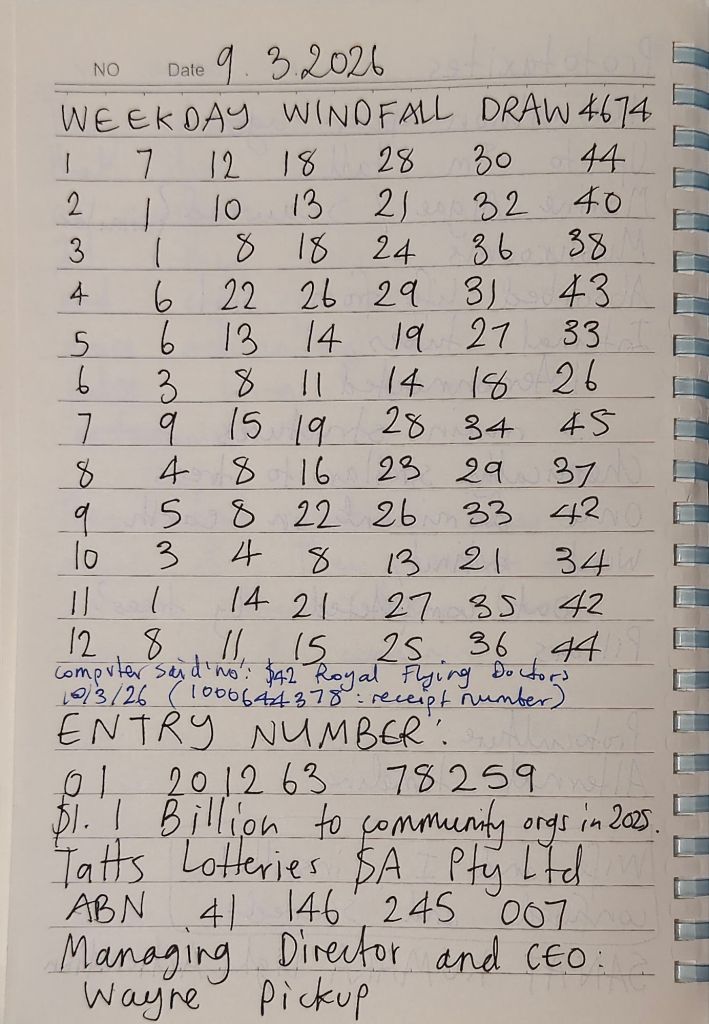 NO Date 9.3.2026
WEEKDAY WINDFALL DRAW 4674
1 7 12 18 28 30 44
2 1 10 13 21 32 40
3 1 8 18 24 36 38
4 6 22 26 29 31 43
5 6 13 14 19 27 33
6 3 8 11 14 18 26
7 9 15 19 28 34 45
8 4 8 16 23 29 37
9 5 8 22 26 33 42
10 3 4 8 13 21 34
11 1 14 21 27 35 42
12 8 11 15 25 36 44
computer said 'no': $42 Royal Flying Doctors
10/3/26 (1000644378: receipt number)
ENTRY NUMBER:
01 20 12 63 78259
$1.1 Billion to community orgs in 2025.
Tatts Lotteries SA Pty Ltd
ABN 41 146 245 007
Managing Director and CEO:
Wayne Pickup